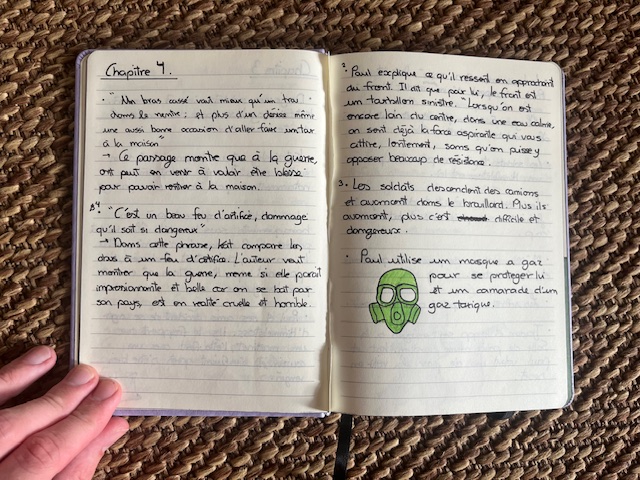 Chapitre 4.
• "Un bras cassé vaut mieux qu'un trou
dans le ventre ; et plus d'un désire même
une aussi bonne occasion d'aller faire un tour
à la maison"
→ Ce passage montre que à la guerre,
ont peut en venir à vouloir être blessé
pour pouvoir rentrer à la maison.
• "C'est un beau feu d'artifice, dommage
qu'il soit si dangereux"
→ Dans cette phrase, compare les
à un feu d'artifice. L'auteur veut
montrer que la guerre, meme si elle parait
impressionnante et belle car on se bat pour
son pays, est en realité cruelle et horrible.
2. Paul explique ce qu'il ressent en approchant
du front. Il dit que pour lui, le front est
un tourbillon sinistre. "Lorsqu'on est
encore loin du centre, dans une eau calme,
on sent déjà la force aspirante qui vous
attire, lentement, sans qu'on puisse y
opposer beaucoup de résistance.
3. Les soldats descendent des camions
et avancent dans le brouillard. Plus ils
avancent, plus c'est difficile et
dangereux.
• Paul utilise un masque a gaz
pour se proteger lui
et un camarade d'un
gaz toxique.